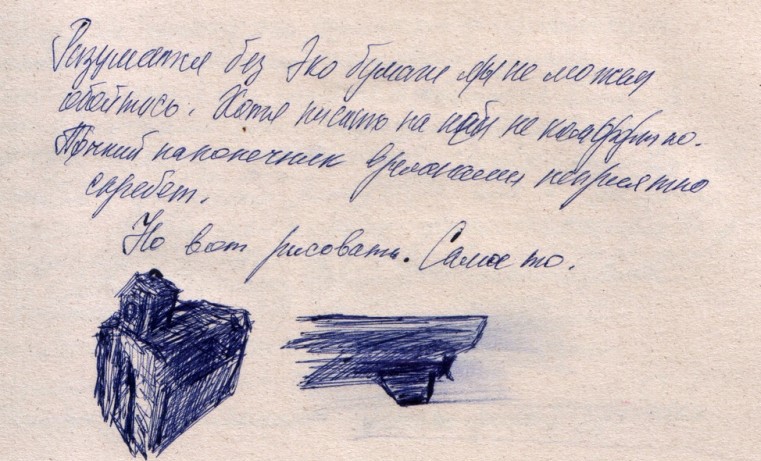 Разумеется без Эко бумаги мы не можем
обойтись. Хотя писать на ней не комфортно.
Тонкий наконечник временами неприятно
скребет.
Но вот рисовать. Самое то.